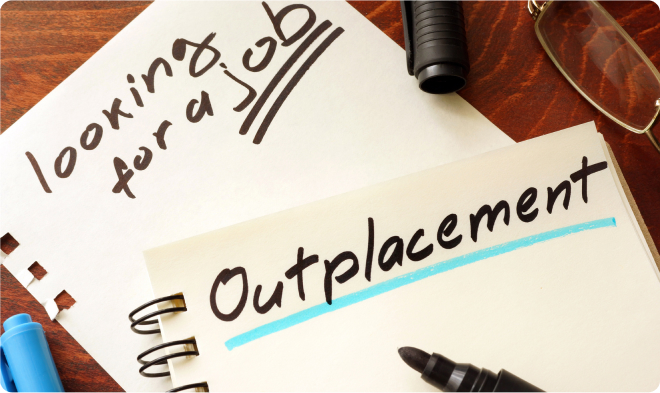 looking
for a job
Outplacement